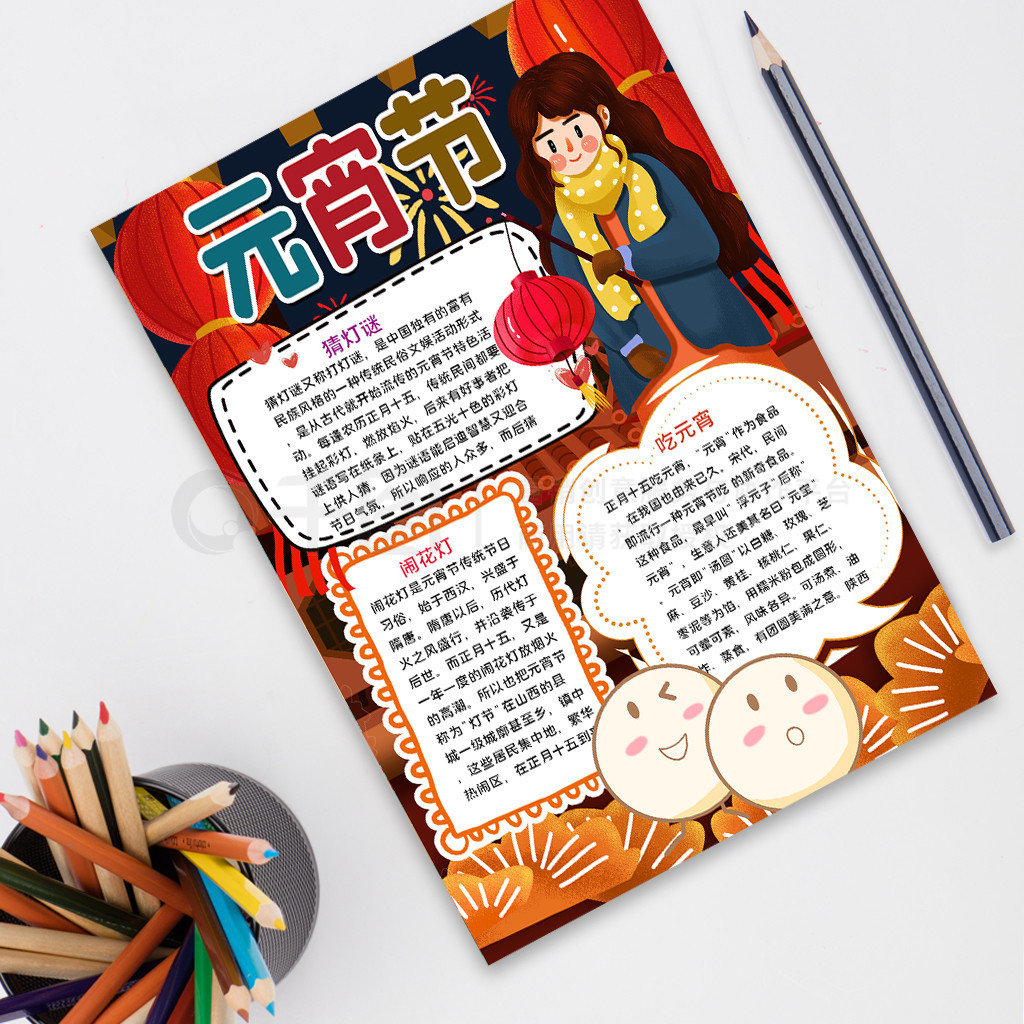 元宵节
猜灯谜
猜灯谜又称打灯谜，是中国独有的富有
民族风格的一种传统民俗文娱活动形式
，是从古代就开始流传的元宵节特色活
动。每逢农历正月十五，传统民间都要
挂起彩灯，燃放焰火，后来有好事者把
谜语写在纸条上，贴在五光十色的彩灯
上供人猜。因为谜语能启迪智慧又迎合
节日气氛，所以响应的人众多，而后猜
闹花灯
闹花灯是元宵节传统节日
习俗，始于西汉，兴盛于
隋唐。隋唐以后，历代灯
火之风盛行，并沿袭传于
后世。而正月十五，又是
一年一度的闹花灯放烟火
的高潮。所以也把元宵节
称为“灯节”在山西的县
城一级城廓甚至乡，镇中
，这些居民集中地，繁华
热闹区，在正月十五到
吃元宵
正月十五吃元宵，“元宵”作为食品
，在我国也由来已久。宋代，民间
即流行一种元宵节吃 的新奇食品。
这种食品，最早叫“浮元子”后称”
元宵”，生意人还美其名曰“元宝”
。元宵即“汤圆”以白糖、玫瑰、芝
麻、豆沙、黄桂、核桃仁、果仁、
枣泥等为馅，用糯米粉包成圆形，
可荤可素，风味各异。可汤煮，油
炸、蒸食，有团圆美满之意。陕西